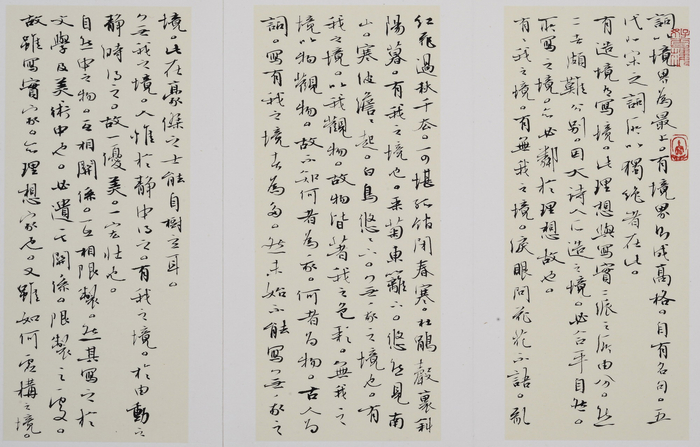 詞以境界為最上。有境界則成高格。自有名句。五
代北宋之詞所以獨絕者在此。
有造境有寫境。此理想與寫實二派之所由分。然
二者頗難分別。因大詩人所造之境。必合乎自然。
所寫之境。亦必鄰於理想故也。
有有我之境。有無我之境。淚眼問花花不語。亂
紅飛過秋千去。可堪孤館閉春寒。杜鵑聲裏斜
陽暮。有我之境也。采菊東籬下。悠然見南
山。寒波澹〻起。白鳥悠〻下。無我之境也。有
我之境。以我觀物。故物皆著我之色彩。無我之
境。以物觀物。故不知何者為我。何者為物。古人為
詞。寫有我之境者為多。然未始不能寫無我之
境。此在豪傑之士能自樹立耳。
無我之境。人惟於靜中得之。有我之境。於由動之
靜時得之。故一優美。一宏壯也。
自然中之物。互相關係。互相限製。然其寫之於
文學及美術中也。必遺其關係。限製之處。
故雖寫實家。亦理想家也。又雖如何虛構之境。